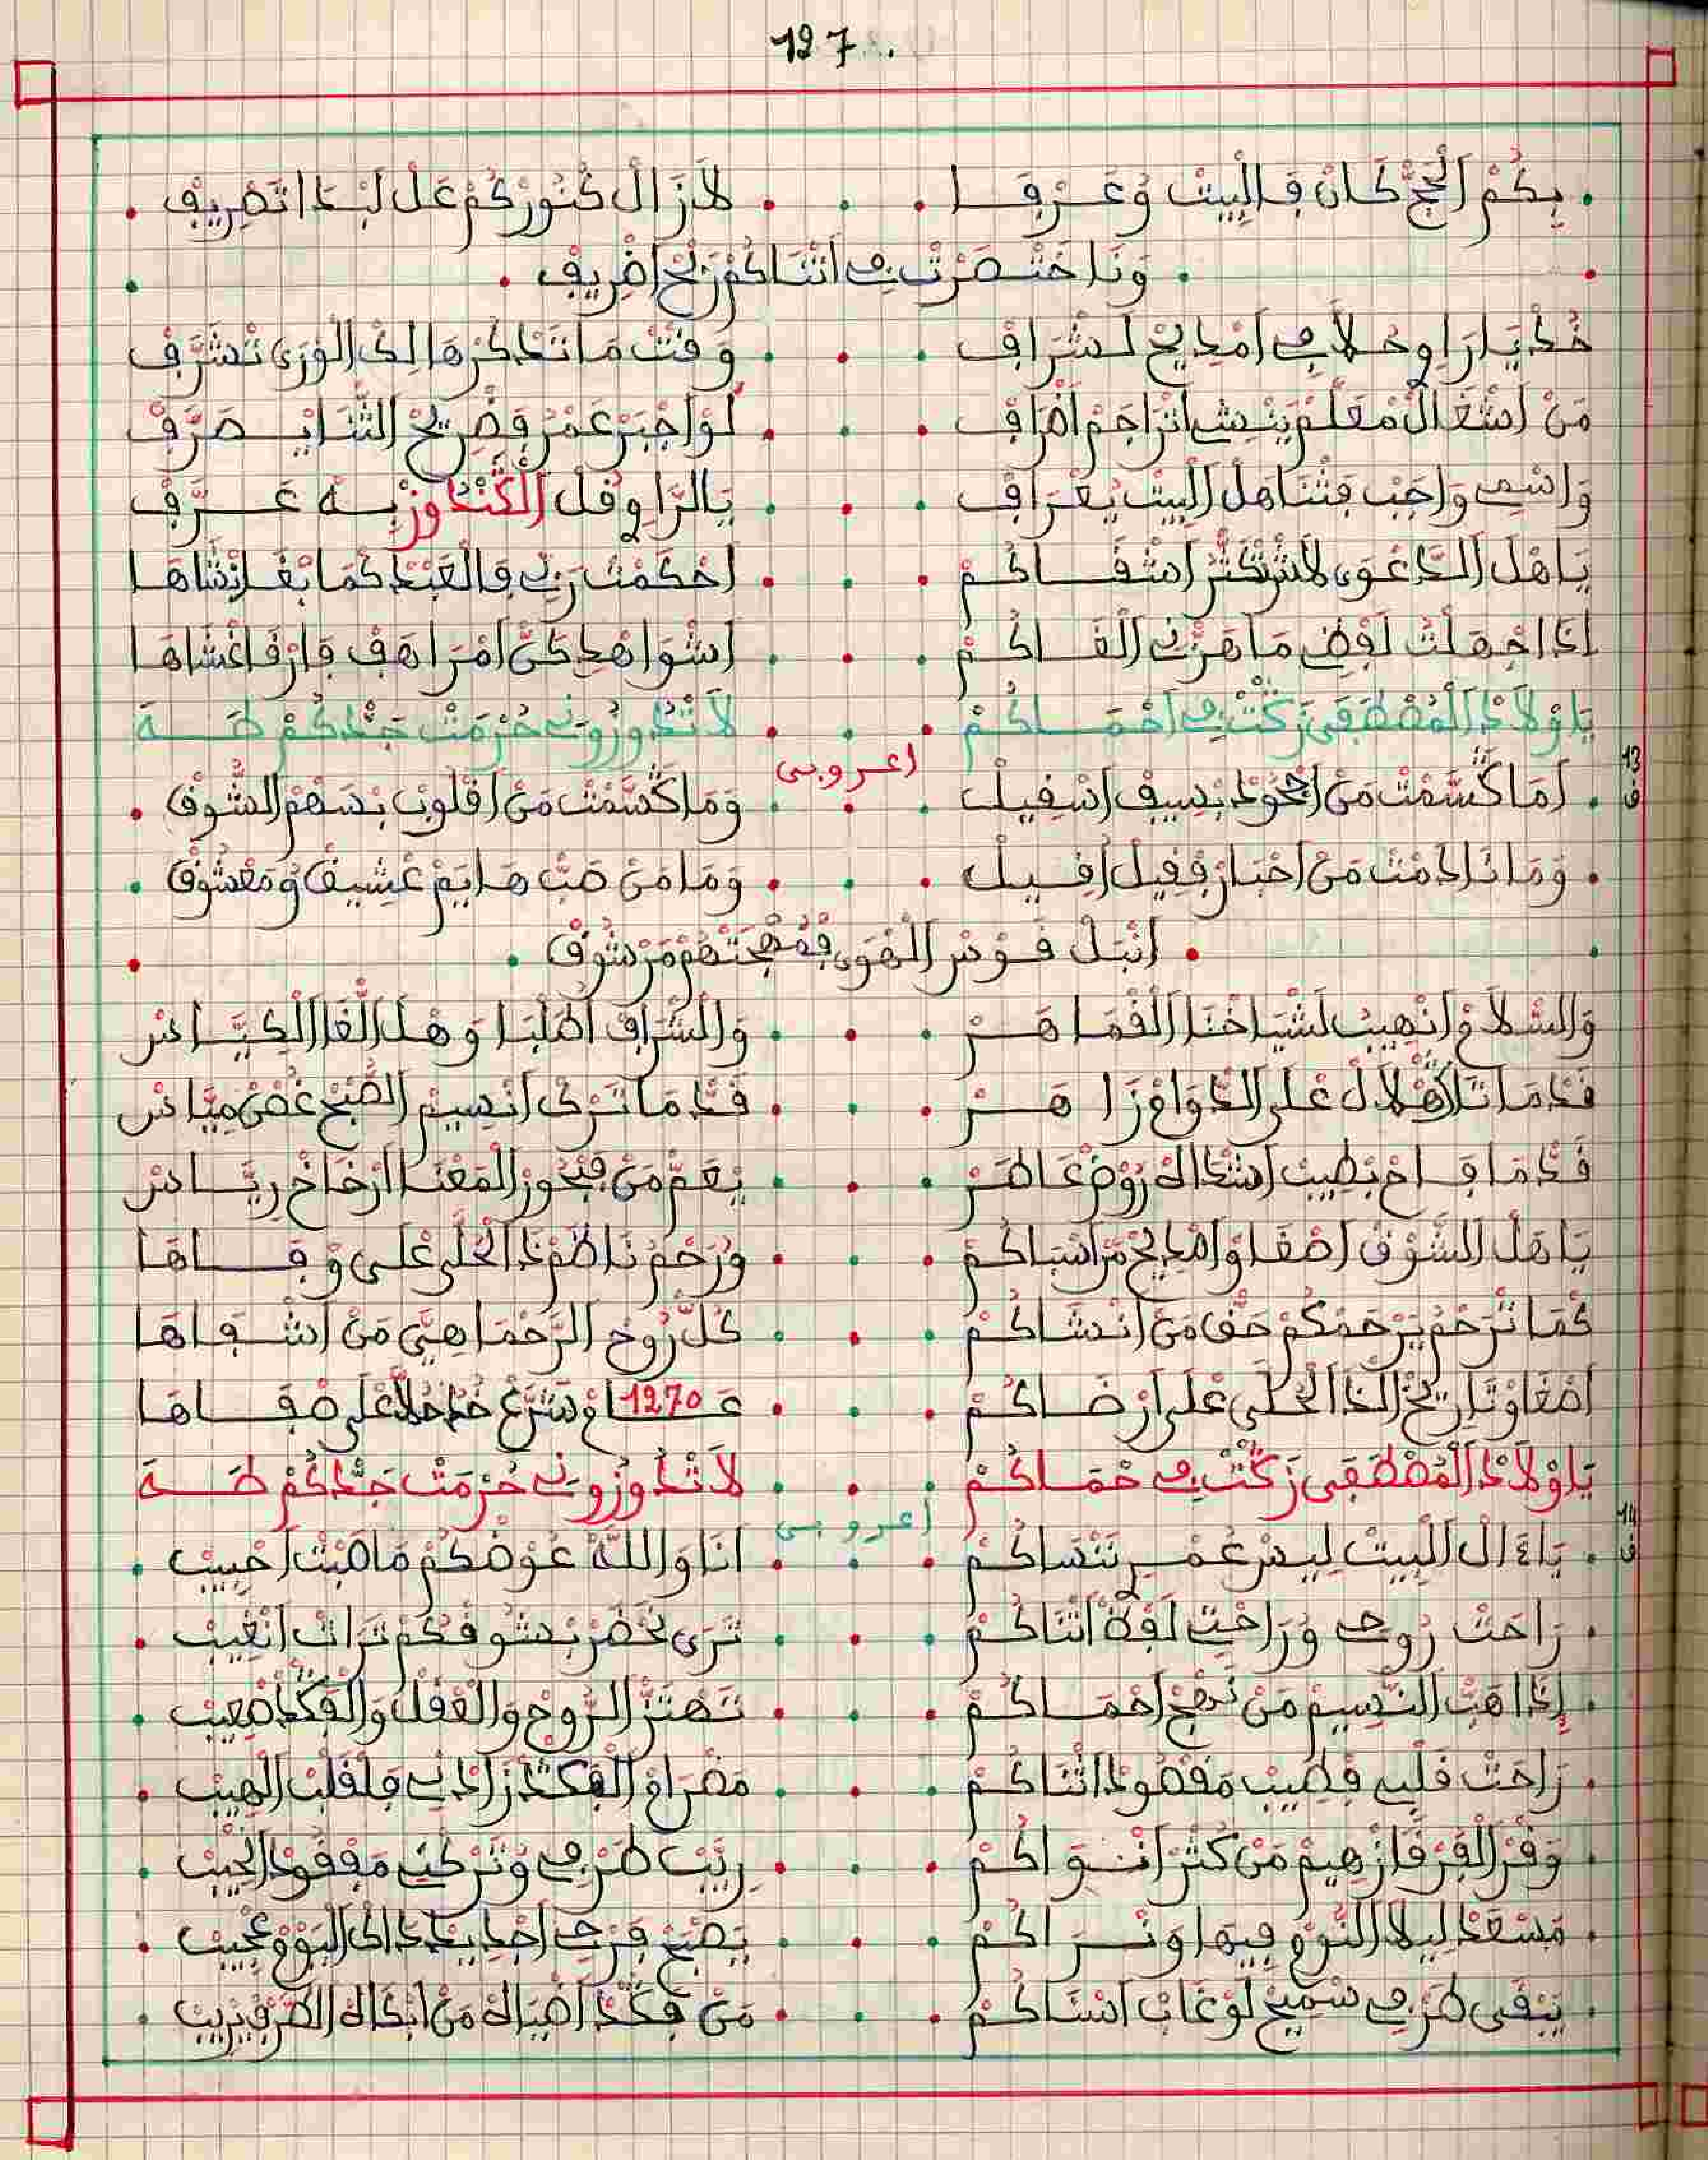 127
بكم الحج كان فالبيت وعرفا لازال كنوزكم عل لبدا تضريف
ونا ختصرت في اثناكم زنج اضريف
خد يا راوي حلا في امديح لشراف وقت ما تدكرها لك الورى تشرف
من اشغال معلم ينشي اتراجم اطراف لو اجبر عمر فضريح الثنا يصرف
واسمي واجب فثنا هل البيت يعراف يالراوي قل الكندوز به عرف
ياهل الدعوى لاش تكثر اشقاكم احكمت ربي فالعبد كما بغا انشاها
ادا جهلت لفضي ما هزني القاكم اشواهد كن امراهف فارقا غشاها
ياولاد المصطفى زكت في احماكم لا تدوزوني حرمت جدكم طه
اعروبي
13 ق
اما كسمت من اجود بسيف اسقيل وما كسمت من اقلوب بسهم الشوق
وما نادمت من احبار ففيل افيل وما من صب هايم عشيق ومعشوق
انبل قوس الهوى فمهجتهم مرشوق
والسلام انهيب لشياخنا الفماهر والشراف الطلبا وهل الغا الكياس
قد ما تلا هلال على الدوام زاهر قد ما ترك انسيم الصبح غصن مياس
قد ما فاح بطيب اشداه روض عاطر يعم من فبحور المعنا ارخاخ رياس
ياهل الشوق اصغاو امديح من اسباكم ورحم ناظم دا الحلى على وفاها
كما نرحم يرحمكم حق من انشاكم كل روح الرحما هي من اشفاها
اصغاو تاريخ الدا الحلى على ارضاكم عام 1270 شرع خد حلا على صفاها
ياولاد المصطفى زكت في حماكم لا تدوزوني حرمت جدكم طه
اعروبي
14 ق
يا ءال البيت ليس عمر ننساكم انا والله عوضكم ما صبت احبيب
راحت روحي وراحتي لفظ اثناكم ترى نحضر بشوقكم ترات انغيب
إدا هب النسيم من نهج احماكم تهتز الروح والعقل والفكد اصعيب
راحت قلبي فطيب مقصود اثناكم مضرام الفكد زادني فلقلب الهيب
وقر الفرقا زهيم من كثر انواكم ريب طرفي وتركني مفقود الحبيب
مسعد ليلا النوم فيها ونراكم يصبح فرحي اجديد داك اليوم عجيب
يبقى طرفي سميح لوغاب اسناكم من فكد اضياه من ابكاه الطرف يريب